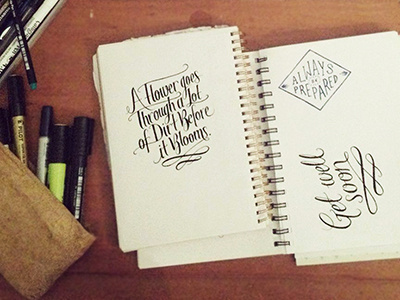 A Flower goes
through a lot
of Dirt Before
it Blooms.
ALWAYS
BE
PREPARED
Get well
soon
PILOT